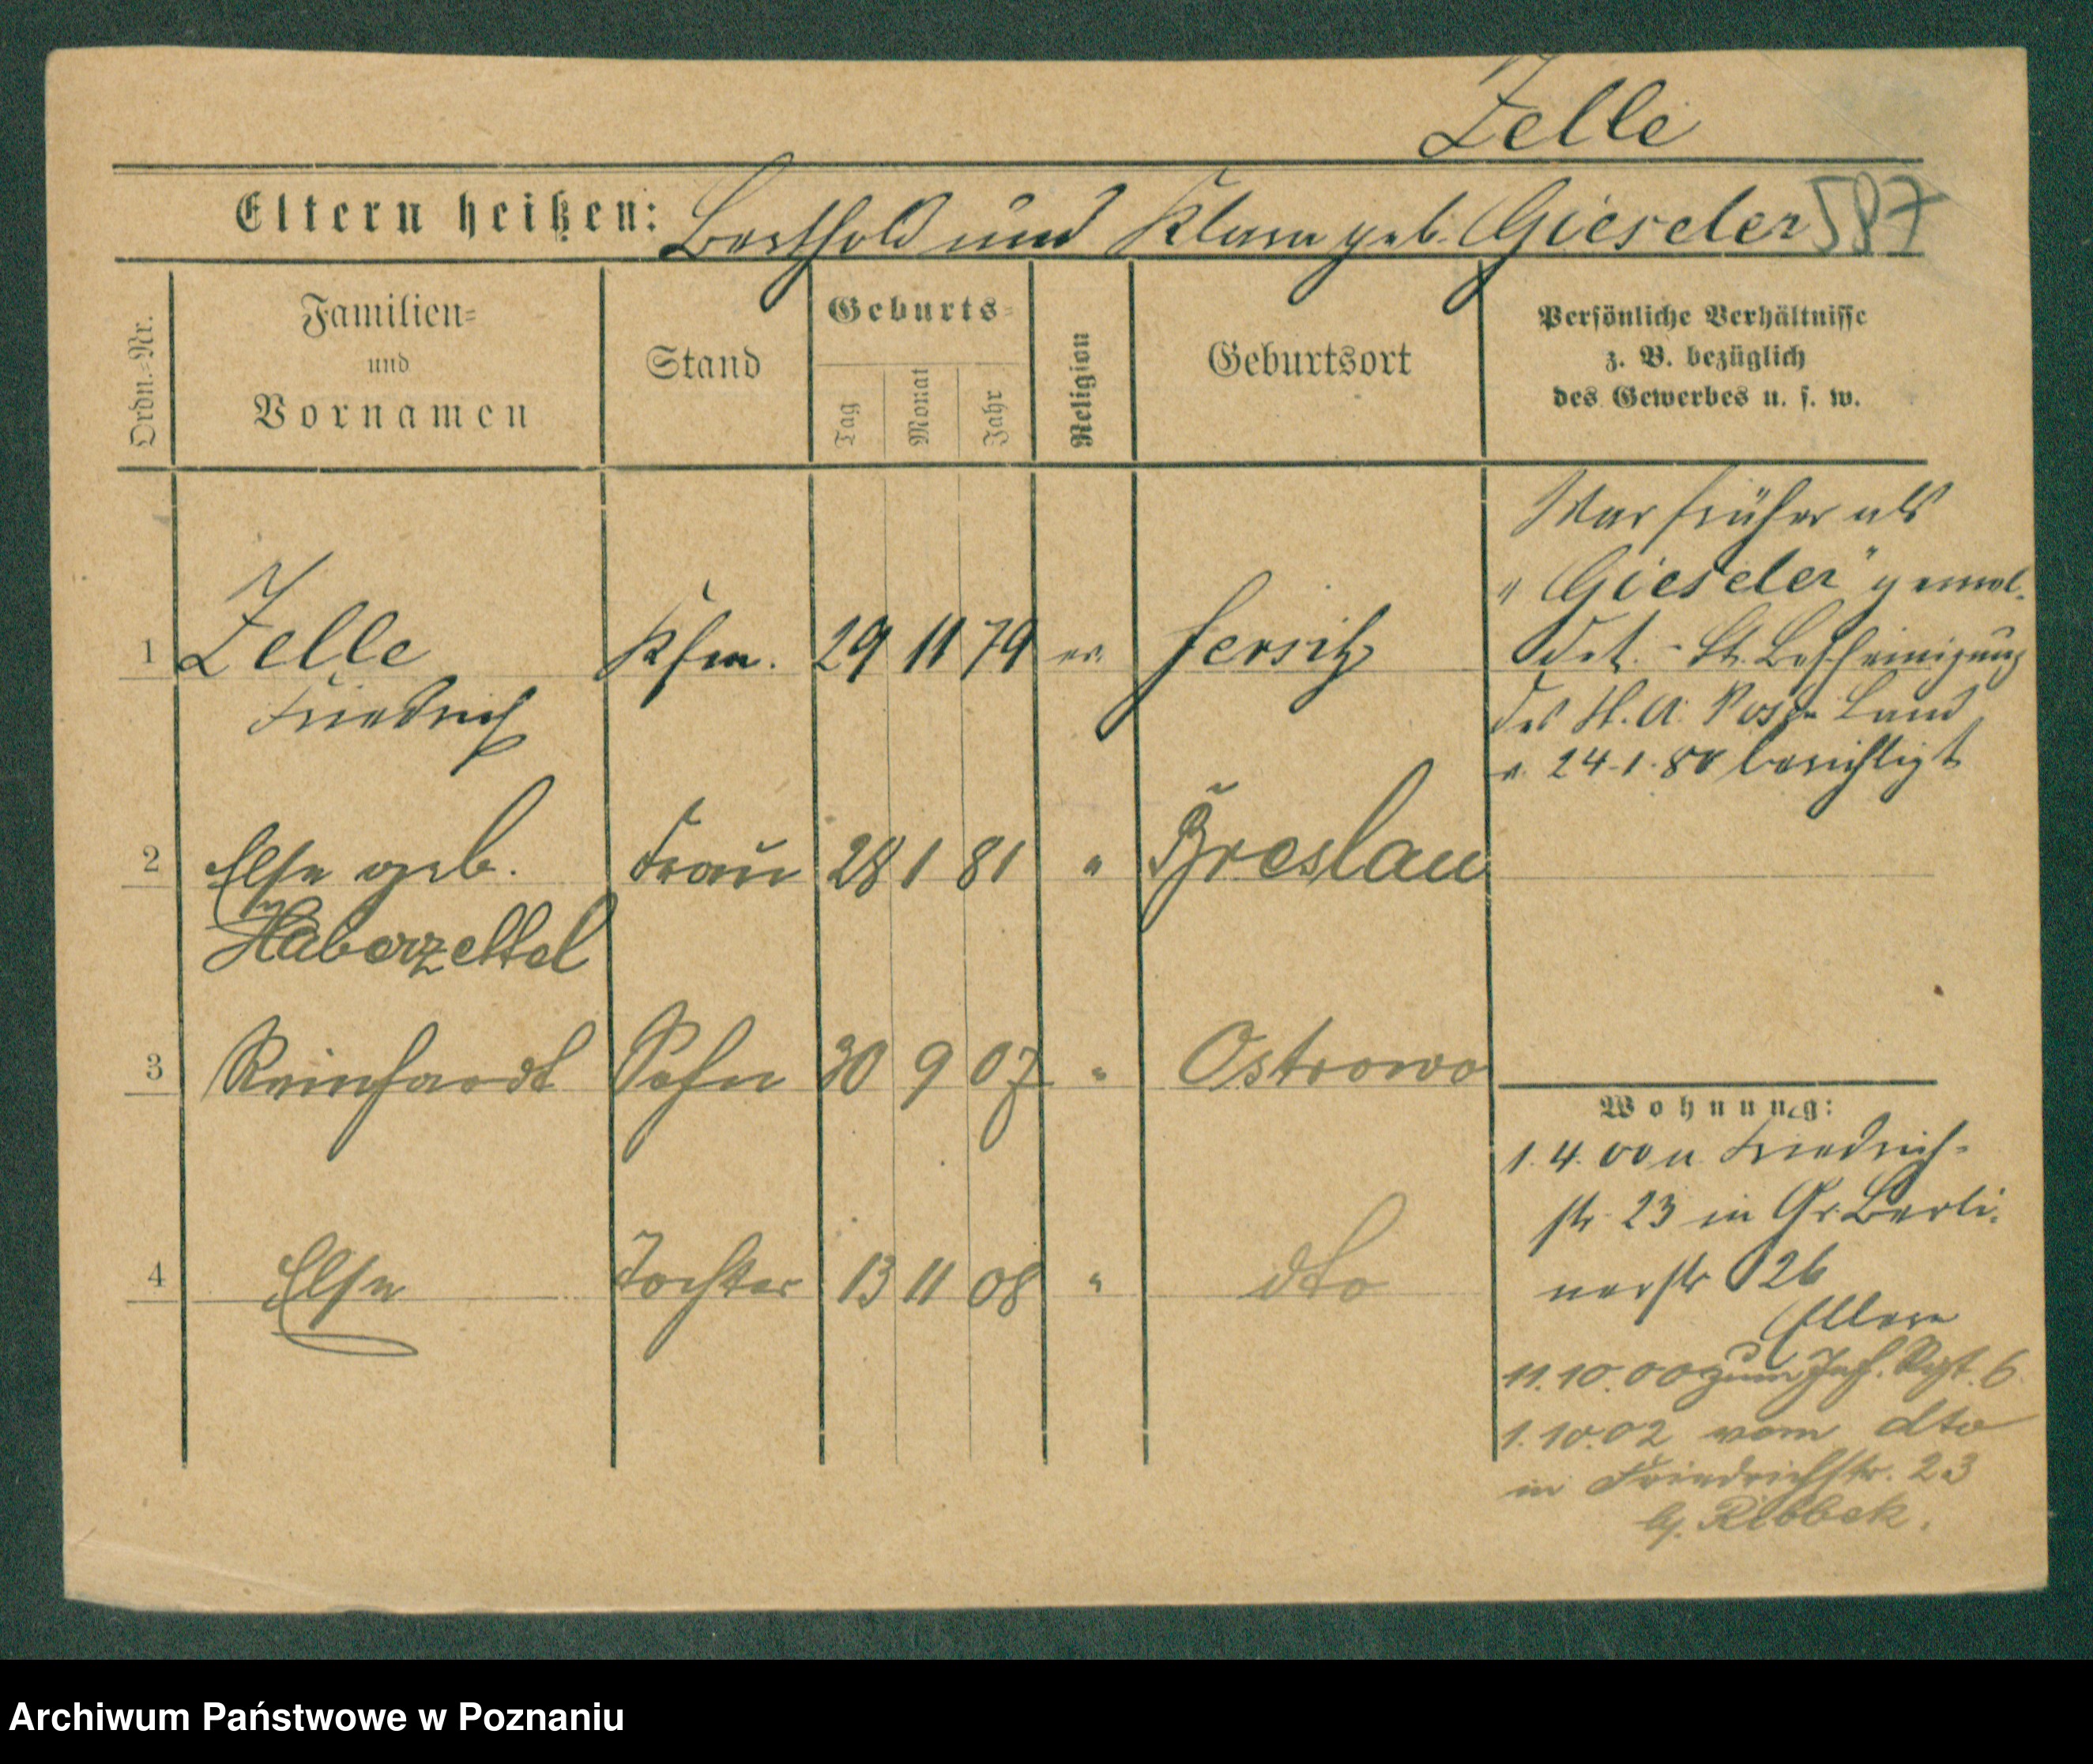 Zelle
Eltern heißen: Berthold und Klara geb. Gieseler 587
Ordn.-Nr.
Familien-
und
Vornamen
Stand
Geburts-
Tag
Monat
Jahr
Religion
Geburtsort
Persönliche Verhältnisse
z. B. bezüglich
des Gewerbes u. s. w.
War früher als
"Gieseler" gemel-
det. - lt. Bescheinigung
des St. A. Posen Land
v. 24.1.80 berichtigt
1 Zelle Kfm. 29 11 79 ev. Jersitz
Friedrich
2 Else geb. Frau 28 1 81 " Breslau
Haberzettel
3 Reinhardt Sohn 30 9 07 " Ostrowo
4 Else Tochter 13 11 08 " dto
Wohnung:
1.4.00 v. Friedrich-
str. 23 in Gr. Berli-
nerstr 26
Eltern
11.10.00 zum Inf. Rgt. 6
1.10.02 vom dto
in Friedrichstr. 23
bj. Ribbek.
Archiwum Państwowe w Poznaniu